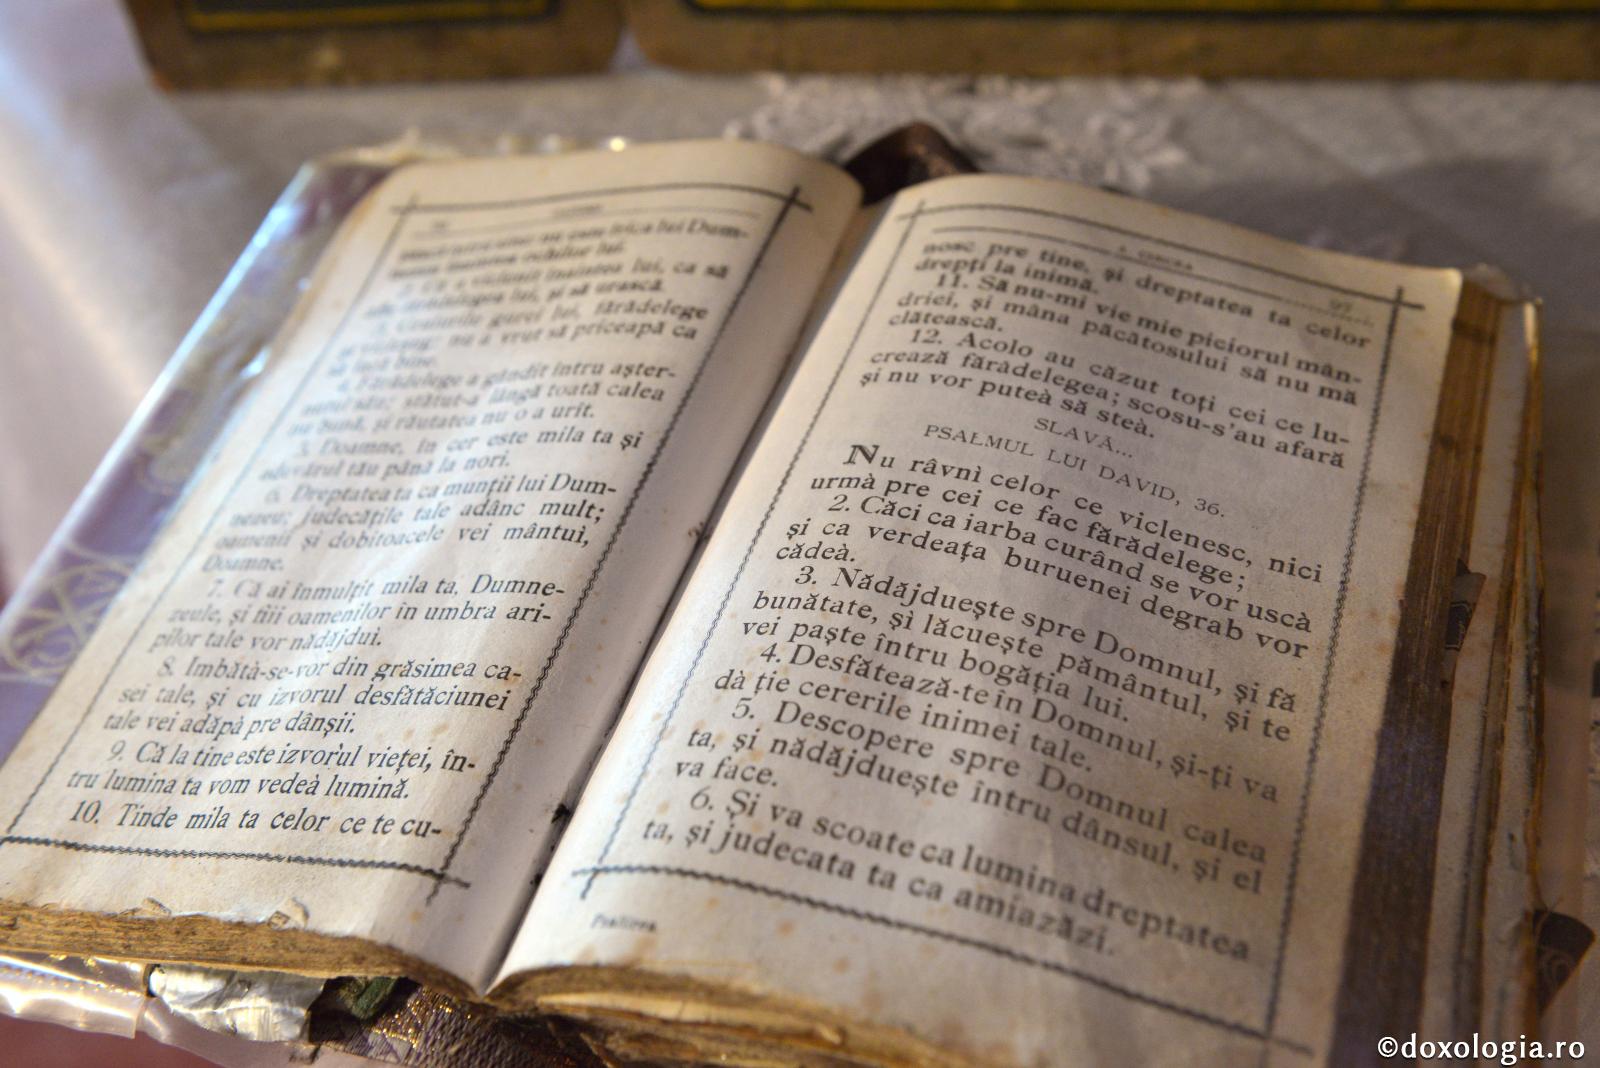 frica lui Dum-
înaintea ochilor lui.
2. Că a viclenit înaintea lui, ca să
lui, și să urască.
3. gurei lui, fărădelege
și nu a vrut să priceapă ca
bine.
4. Fărădelege a gândit întru așter-
nutul său; stătut-a lângă toată calea
nu bună, și răutatea nu o a urît.
5. Doamne, în cer este mila ta și
adevărul tău până la nori.
6. Dreptatea ta ca munții lui Dum-
nezeu; judecățile tale adânc mult;
oamenii și dobitoacele vei mântuì,
Doamne.
7. Că ai înmulțit mila ta, Dumne-
zeule, și fiii oamenilor în umbra ari-
pilor tale vor nădăjdui.
8. Imbătà-se-vor din grăsimea ca-
sei tale, și cu izvorul desfătăciunei
tale vei adăpà pre dânșii.
9. Că la tine este izvorul vieței, în-
tru lumina ta vom vedeà lumină.
10. Tinde mila ta celor ce te cu-
97
nosc pre tine, și dreptatea ta celor
drepți la inimă.
11. Să nu-mi vie mie piciorul mân-
driei, și mâna păcătosului să nu mă
clătească.
12. Acolo au căzut toți cei ce lu-
crează fărădelegea; scosu-s'au afară
și nu vor puteà să steà.
SLAVĂ...
PSALMUL LUI DAVID, 36.
Nu râvnì celor ce viclenesc, nici
urmà pre cei ce fac fărădelege;
2. Căci ca iarba curând se vor uscà
și ca verdeața buruenei degrab vor
cădeà.
3. Nădăjduește spre Domnul, și fă
bunătate, și lăcuește pământul, și te
vei paște întru bogăția lui.
4. Desfătează-te în Domnul, și-ți va
dà ție cererile inimei tale.
5. Descopere spre Domnul calea
ta, și nădăjduește întru dânsul, și el
va face.
6. Și va scoate ca lumina dreptatea
ta, și judecata ta ca amiazăzi.
Psaltirea
©doxologia.ro